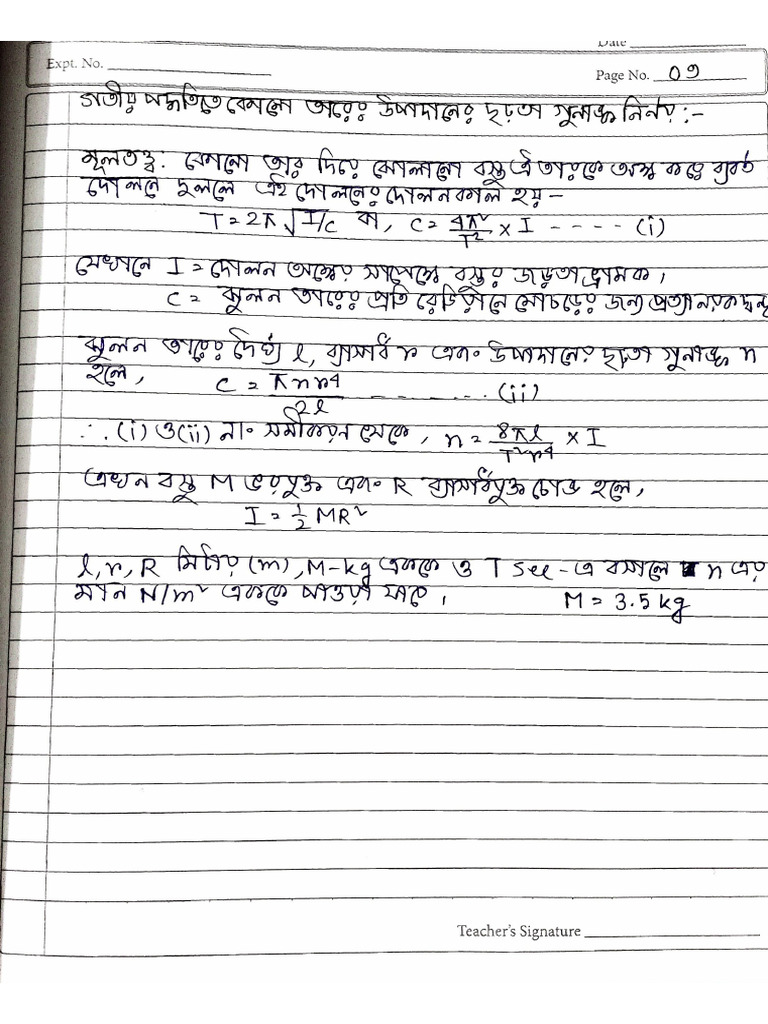 Date
Expt. No.
Page No. 09
গতীয় পদ্ধতিতে কোনো তারের উপাদানের দৃঢ়তা গুনাঙ্ক নির্নয় :-
মূলতত্ত্ব : কোনো তার দিয়ে ঝোলানো বস্তু ঐ তারকে অক্ষ করে ব্যবর্ত
দোলনে দুললে এই দোলনের দোলনকাল হয় -
T = 2π √I/c বা, c = 4π²/T² × I ---- (i)
যেখানে I = দোলন অক্ষের সাপেক্ষে বস্তুর জড়তা ভ্রামক,
c = ঝুলন তারের প্রতি রেডিয়ানে মোচড়ের জন্য প্রত্যানয়ক দ্বন্দ্ব
ঝুলন তারের দৈর্ঘ্য l, ব্যাসার্ধ r এবং উপাদানের দৃঢ়তা গুনাঙ্ক n
হলে, c = πnr⁴/2l -------- (ii)
∴ (i) ও (ii) নং সমীকরন থেকে, n = 8πl/T²r⁴ × I
এখন বস্তু M ভরযুক্ত এবং R ব্যাসার্ধযুক্ত চোঙ হলে,
I = ½ MR²
l, r, R মিটার (m), M-kg এককে ও T sec-এ বসালে n এর
মান N/m² এককে পাওয়া যাবে,
M = 3.5 kg
Teacher's Signature